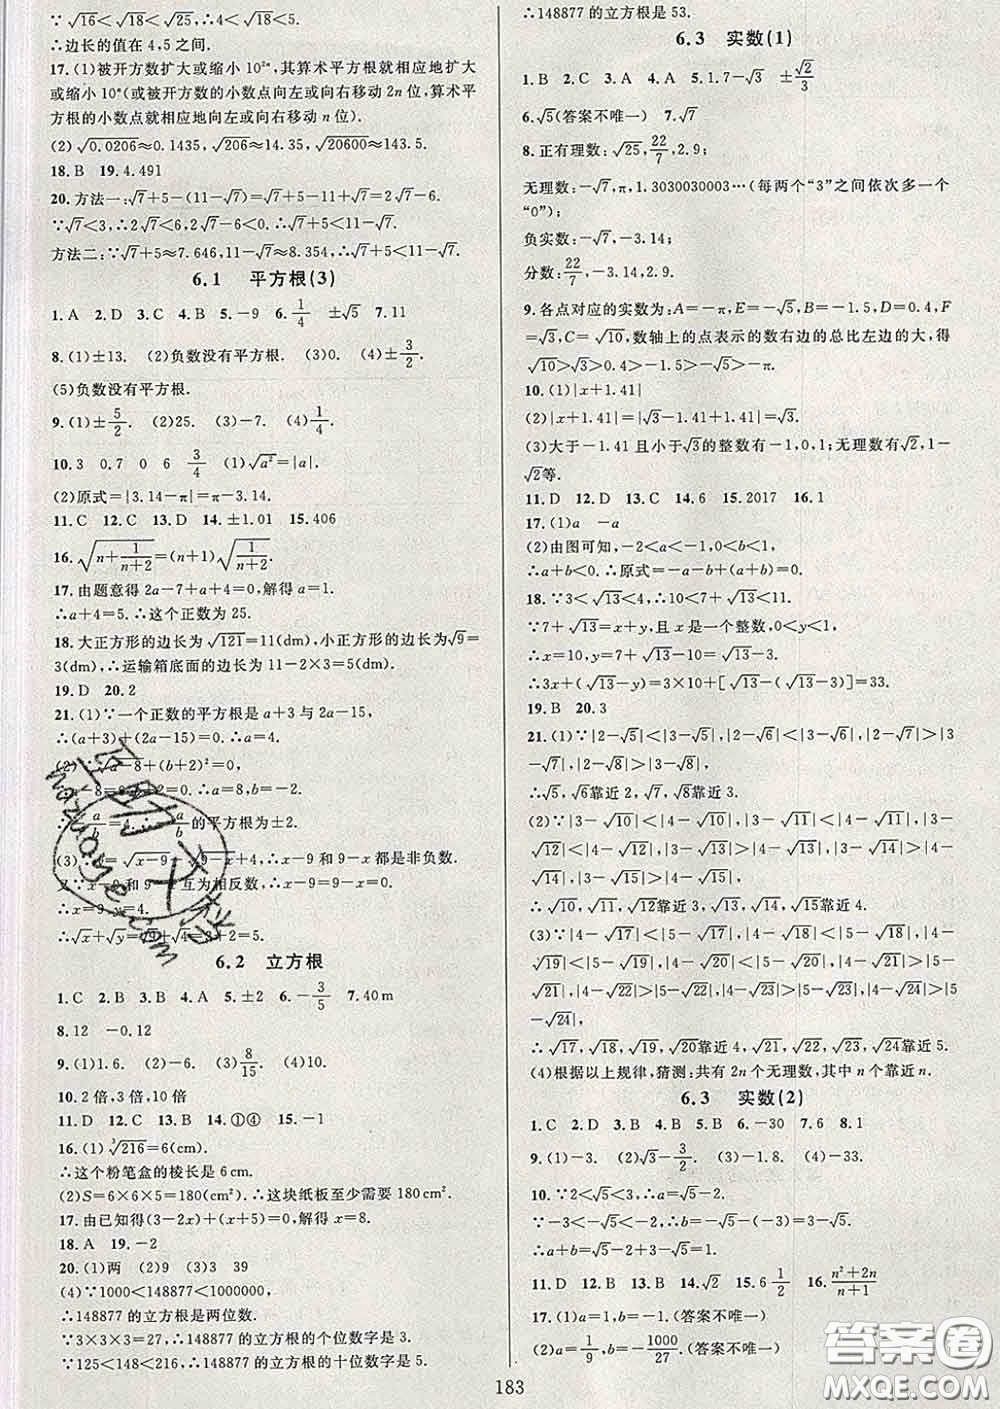 ∵√16<√18<√25,∴4<√18<5.
∴边长的值在 4,5 之间.
17.(1)被开方数扩大或缩小 10²ⁿ,其算术平方根就相应地扩大
或缩小 10ⁿ(或被开方数的小数点向左或向右移动 2n 位,算术平
方根的小数点就相应地向左或向右移动 n 位).
(2)√0.0206≈0.1435,√206≈14.35,√20600≈143.5.
18.B 19.4.491
20.方法一:√7+5-(11-√7)=√7+5-11+√7=2√7-6.
∵√7<3,∴2√7<6,2√7-6<0.∴√7+5<11-√7.
方法二:∵√7+5≈7.646,11-√7≈8.354,∴√7+5<11-√7.
6.1 平方根(3)
1.A 2.D 3.C 4.B 5.-9 6.1/4 ±√5 7.11
8.(1)±13. (2)负数没有平方根. (3)0. (4)±3/2.
(5)负数没有平方根.
9.(1)±5/2. (2)25. (3)-7. (4)1/4.
10.3 0.7 0 6 3/4 (1)√a²=|a|.
(2)原式=|3.14-π|=π-3.14.
11.C 12.C 13.D 14.±1.01 15.406
16.√(n+1/(n+2))=(n+1)√(1/(n+2)).
17.由题意得 2a-7+a+4=0,解得 a=1.
∴a+4=5.∴这个正数为 25.
18.大正方形的边长为√121=11(dm),小正方形的边长为√9=
3(dm),∴运输箱底面的边长为 11-2×3=5(dm).
19.D 20.2
21.(1)∵一个正数的平方根是 a+3 与 2a-15,
∴(a+3)+(2a-15)=0.∴a=4.
(2)∵√a-8+(b+2)²=0,
-8=0.∴a=8,b=-2.
a/b=4,∴a/b的平方根为±2.
(3)∵√x-9-√9-x+4,∴x-9 和 9-x 都是非负数.
又∵x-9 和 9-x 互为相反数,∴x-9=0.
∴x=9,y=4.
∴√x+√y=√9+√4=3+2=5.
6.2 立方根
1.C 2.B 3.B 4.A 5.±2 6.-3/5 7.40 m
8.12 -0.12
9.(1)1.6. (2)-6. (3)8/15. (4)10.
10.2 倍,3 倍,10 倍
11.D 12.C 13.B 14.①④ 15.-1
16.(1)∛216=6(cm).
∴这个粉笔盒的棱长是 6 cm.
(2)S=6×6×5=180(cm²).∴这块纸板至少需要 180 cm².
17.由已知得(3-2x)+(x+5)=0,解得 x=8.
18.A 19.-2
20.(1)两 (2)9 (3)3 39
(4)∵1000<148877<1000000,
∴148877 的立方根是两位数.
∵3×3×3=27,∴148877 的立方根的个位数字是 3.
∵125<148<216,∴148877 的立方根的十位数字是 5.
∴148877 的立方根是 53.
6.3 实数(1)
1.B 2.C 3.A 4.A 5.1.7-√3 ±√2/3
6.√5(答案不唯一) 7.√7
8.正有理数:√25,22/7,2.9;
无理数:-√7,π,1.3030030003…(每两个“3”之间依次多一个
“0”);
负实数:-√7,-3.14;
分数:22/7,-3.14,2.9.
9.各点对应的实数为:A=-π,E=-√5,B=-1.5,D=0.4,F
=√3,C=√10,数轴上的点表示的数右边的总比左边的大,得
√10>√3>0.4>-1.5>-√5>-π.
10.(1)|x+1.41|
(2)|x+1.41|=|√3-1.41+1.41|=√3.
(3)大于-1.41 且小于√3的整数有-1,0,1;无理数有√2,1-
√2等.
11.D 12.D 13.C 14.6 15.2017 16.1
17.(1)a -a
(2)由图可知,-2<a<-1,0<b<1,
∴a+b<0.∴原式=-a-b+(a+b)=0.
18.∵3<√13<4,∴10<7+√13<11.
∵7+√13=x+y,且 x 是一个整数,0<y<1,
∴x=10,y=7+√13-10=√13-3.
∴3x+(√13-y)=3×10+[√13-(√13-3)]=33.
19.B 20.3
21.(1)∵|2-√5|<|3-√5|,|2-√6|<|3-√6|,|2-√7|>|3-
√7|,|2-√8|>|3-√8|,
∴√5,√6靠近 2,√7,√8靠近 3.
(2)∵|3-√10|<|4-√10|,|3-√11|<|4-√11|,|3-
√12|<|4-√12|,|3-√13|>|4-√13|,|3-√14|>|4-
√14|,|3-√15|>|4-√15|,
∴√10,√11,√12靠近 3,√13,√14,√15靠近 4.
(3)∵|4-√17|<|5-√17|,|4-√18|<|5-√18|,|4-
√19|<|5-√19|,|4-√20|<|5-√20|,|4-√21|>|5-
√21|,|4-√22|>|5-√22|,|4-√23|>|5-√23|,|4-√24|>|5-
√24|,
∴√17,√18,√19,√20靠近 4,√21,√22,√23,√24靠近 5.
(4)根据以上规律,猜测:共有 2n 个无理数,其中 n 个靠近 n.
6.3 实数(2)
1.C 2.D 3.A 4.D 5.B 6.-30 7.6 8.1
9.(1)-3. (2)√3-3/2. (3)-1. (4)-33.
10.∵2<√5<3,∴a=√5-2.
∵-3<-√5<-2,∴b=-√5-(-3)=3-√5.
∴a+b=√5-2+3-√5=1.
11.D 12.B 13.B 14.√2 15.6 1/2 16.(n²+2n)/(n+1)
17.(1)a=1,b=-1.(答案不唯一)
(2)a=1/9,b=-1000/27.(答案不唯一)
183
答案圈
MXQE.COM